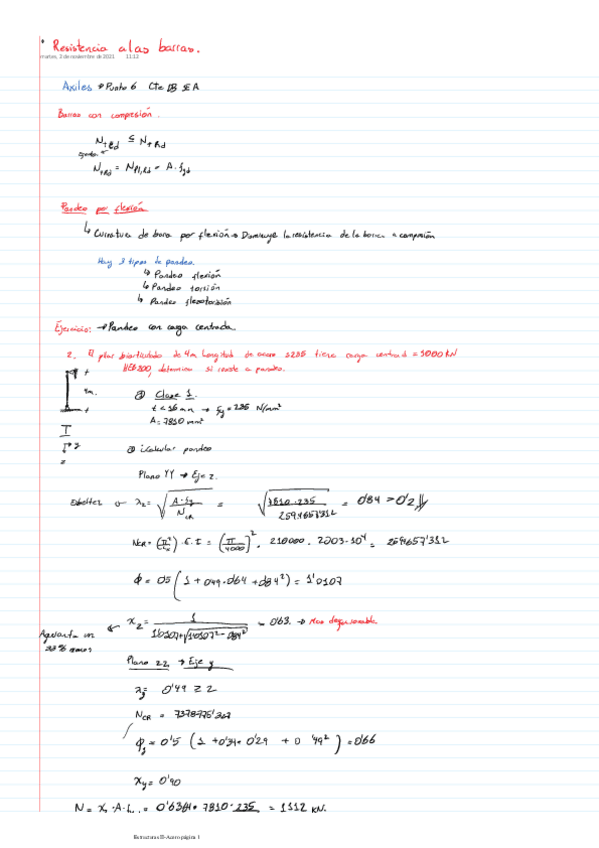 Resistencia a las barras.
martes, 2 de noviembre de 2021 11:12
Axiles → Punto 6 Cte DB SE A
Barras con compresión.
N,Ed ≤ N,Rd
N,Rd = Npl,Rd = A · fyd
Pandeo por flexión
↳ Curvatura de barra por flexión → Disminuye la resistencia de la barra a compresión
Hay 3 tipos de pandeo
↳ Pandeo flexión
↳ Pandeo torsión
↳ Pandeo flexotorsión
Ejercicio: → Pandeo con carga centrada
2. El pilar biarticulado de 4m longitud de acero S235 tiene carga centrad = 1000 kN
HEB200, determina si resiste a pandeo.
4m.
① Clase 1.
t < 16 mm → fy = 235 N/mm²
A = 7810 mm²
② Calcular pandeo
Plano YY → Eje z.
Esbeltez λz = √(A·fy / Ncr) = √(7810·235 / 2594657'312) = 0'84 > 0'2
Ncr = (π/L)² · E · I = (π/4000)² · 210000 · 2003·10⁴ = 2594657'312
ϕ = 0'5 (1 + 0'49·0'64 + 0'84²) = 1'0107
χz = 1 / (1'0107+√(1'0107² - 0'84²)) = 0'63. → Mas desfavorable
Aguanta un
Plano zz → Eje y
λy = 0'49 ≥ 2
Ncr = 7378775'367
ϕy = 0'5 (1 + 0'34 · 0'29 + 0'49²) = 0'66
χy = 0'90
N = χ · A · fy = 0'6364 · 7810 · 235 = 1112 kN.
Estructuras II-Acero página 1